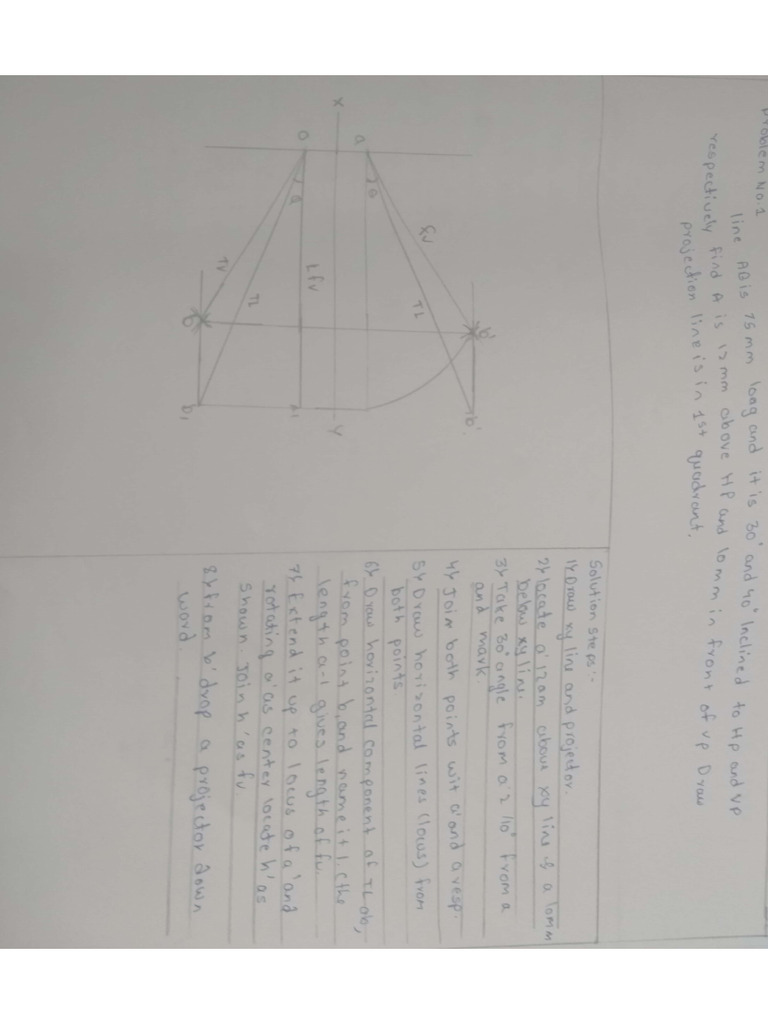 Problem No.1
line AB is 75 mm long and it is 30° and 40° Inclined to Hp and VP
respectively find A is 12mm above HP and 10 mm in front of VP Draw
projection line is in 1st quadrant.
x
y
a'
θ
fv
TL
b'
b'
a
TV
TL
Lfv
b
b,
1
Solution steps :-
1) Draw xy line and projector.
2) locate a' 12mm above xy line & a 10mm
below xy line.
3) Take 30° angle from a' & from a
and mark.
4) Join both points wit a' and a resp.
5) Draw horizontal lines (locus) from
both points
6) Draw horizontal component of TL ab,
from point b, and name it 1. (the
length a-1 gives length of fv.
7) Extend it up to locus of a' and
rotating a' as center locate b' as
shown. Join b' as fv
8) from b' drop a projector down
word.